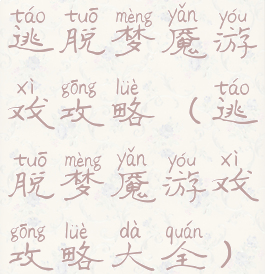 táo tuō mèng yǎn yóu
逃脱梦魇游
xì gōng lüè táo
戏攻略（逃
tuō mèng yǎn yóu xì
脱梦魇游戏
gōng lüè dà quán
攻略大全）